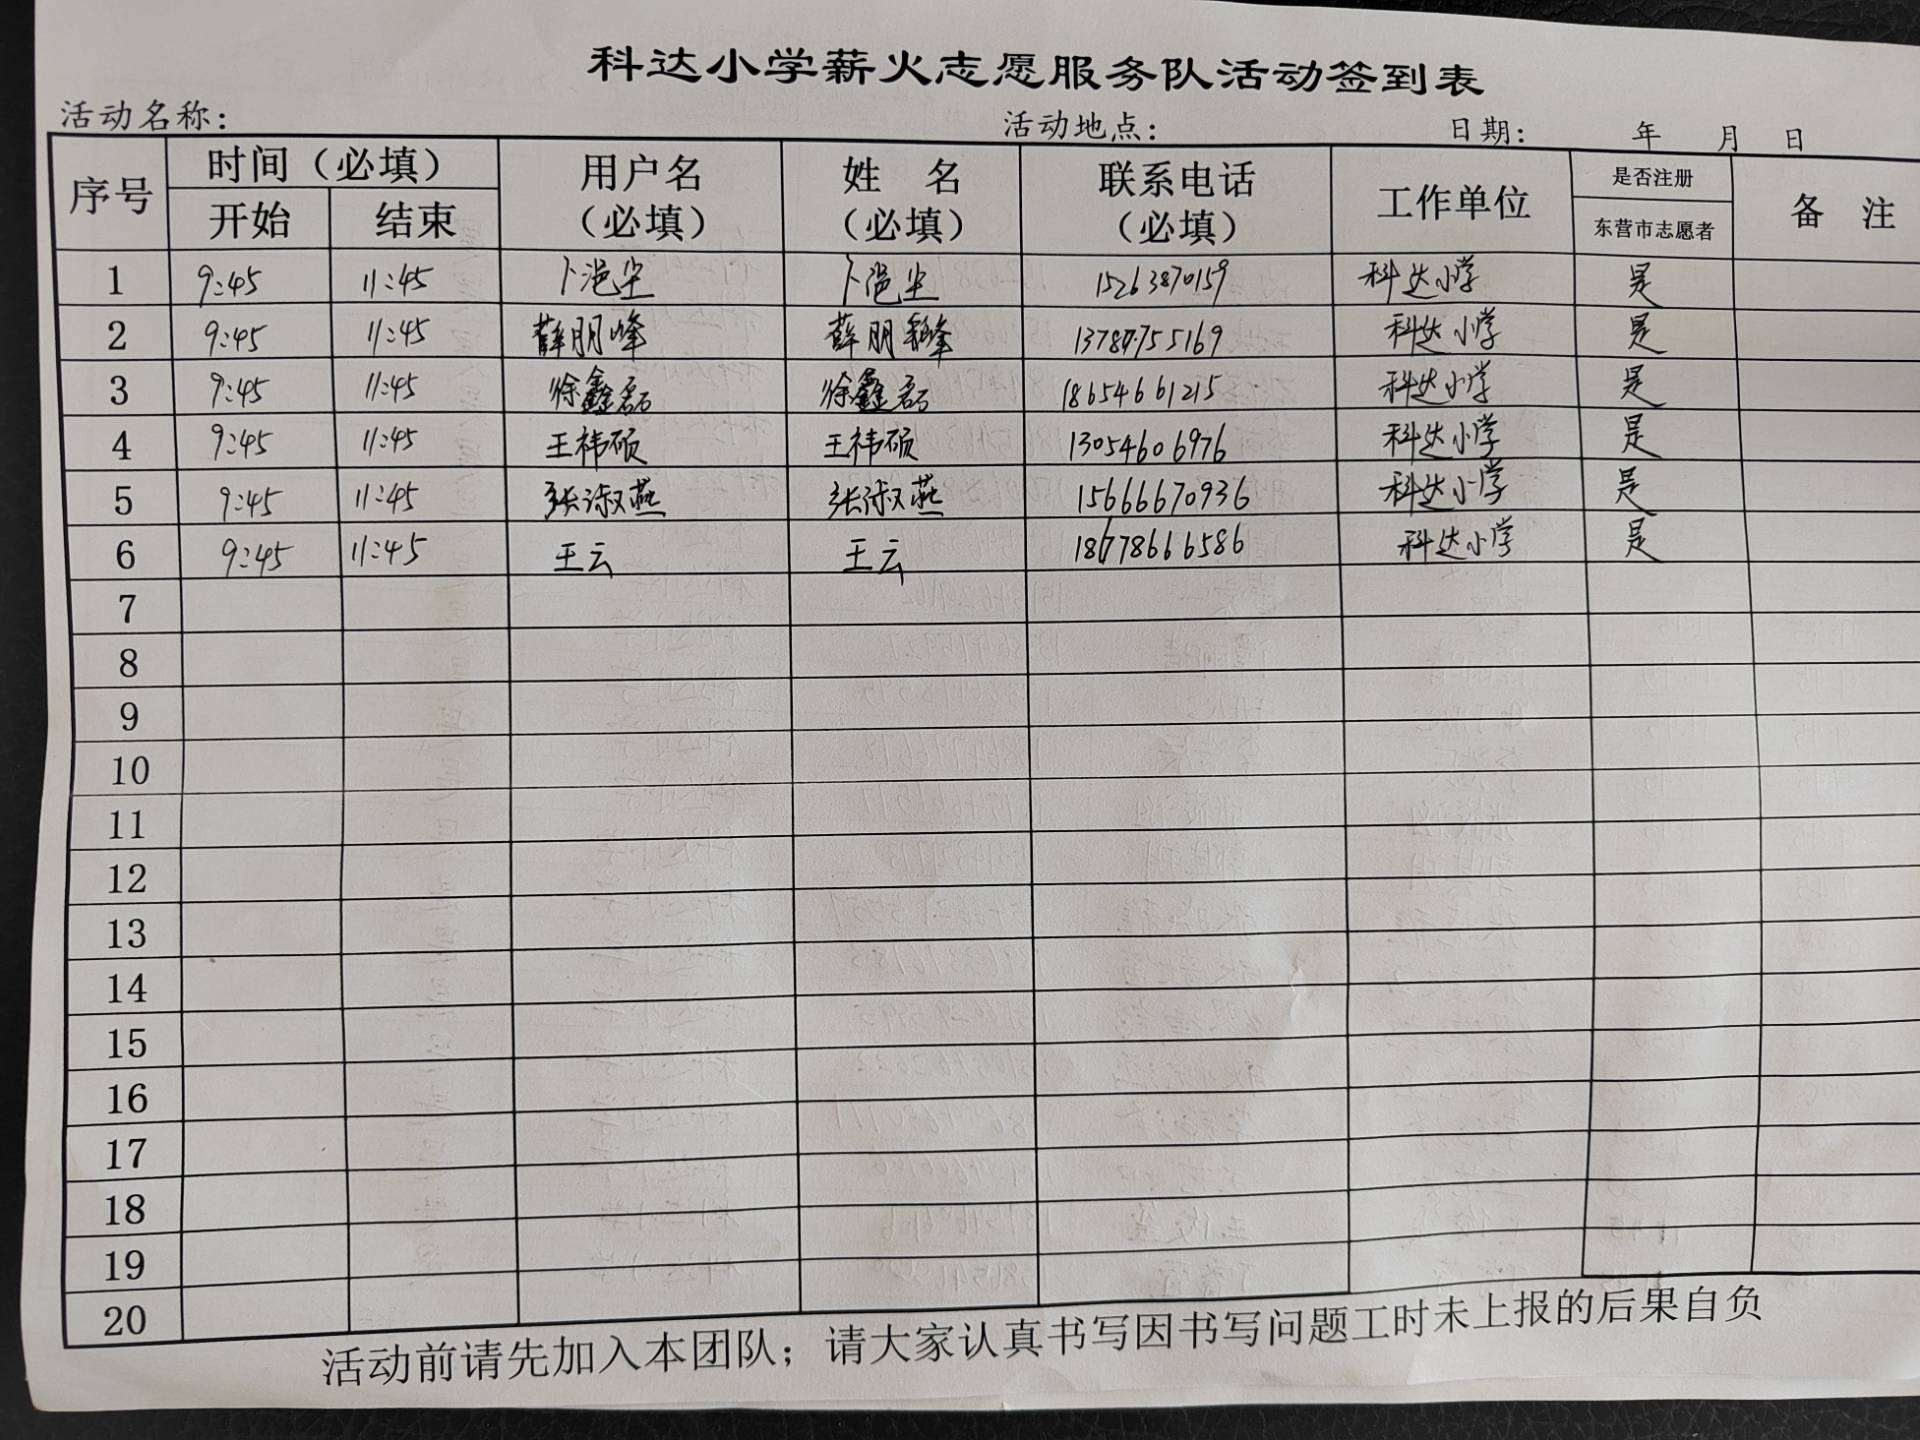 科达小学薪火志愿服务队活动签到表
活动名称: 活动地点: 日期: 年 月 日
序号 时间（必填） 用户名（必填） 姓 名（必填） 联系电话（必填） 工作单位 是否注册 备 注
开始 结束 东营市志愿者
1 9:45 11:45 卜浥尘 卜浥尘 15263870159 科达小学 是
2 9:45 11:45 薛朋峰 薛朋峰 科达小学 是
3 9:45 11:45 徐鑫磊 徐鑫磊 18654661215 科达小学 是
4 9:45 11:45 王祎硕 王祎硕 13054606976 科达小学 是
5 9:45 11:45 张淑燕 张淑燕 15666670936 科达小学 是
6 9:45 11:45 王云 王云 科达小学 是
7
8
9
10
11
12
13
14
15
16
17
18
19
20
活动前请先加入本团队；请大家认真书写因书写问题工时未上报的后果自负